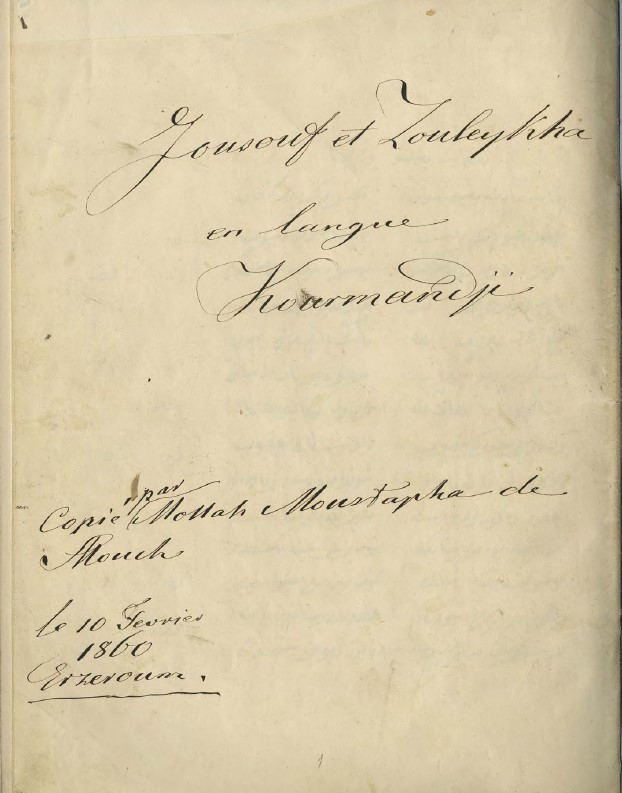 Yousouf et Zouleykha
en langue
Kourmandji
Copié par Mollah Moustapha de
Mouch
le 10 Fevrier
1860
Erzeroum.
1